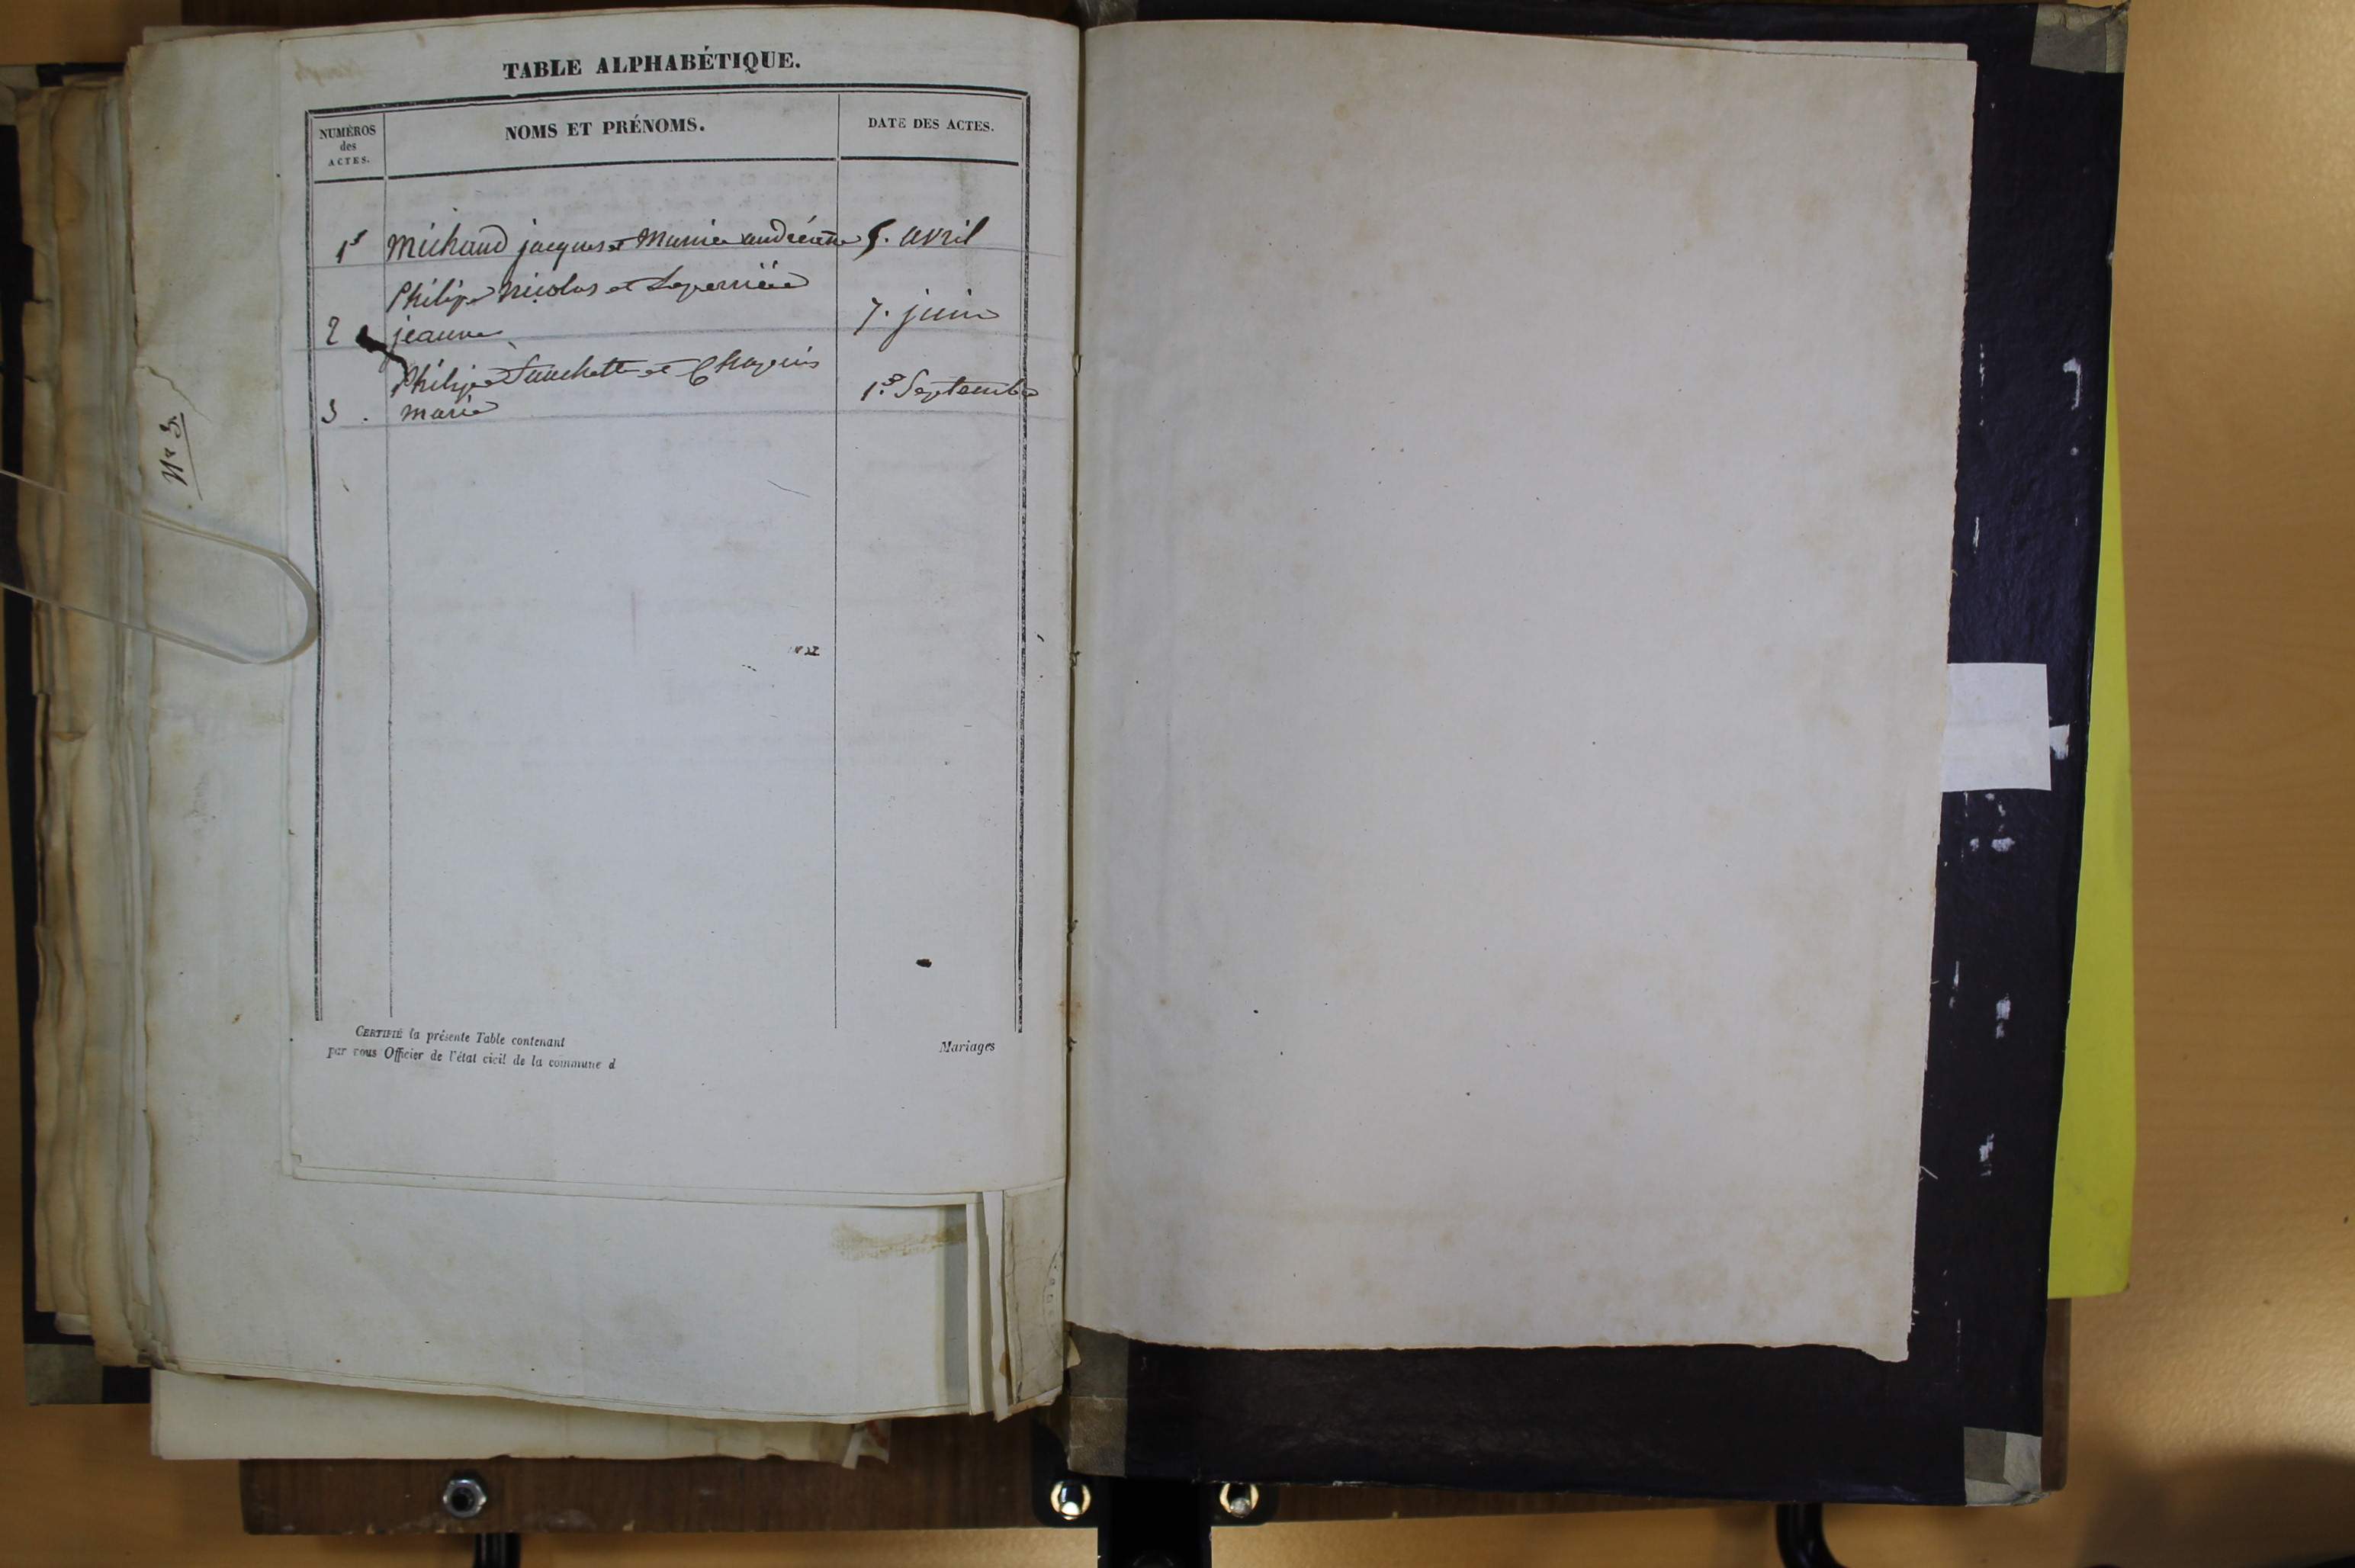 TABLE ALPHABÉTIQUE.
NUMÉROS
des
ACTES.
NOMS ET PRÉNOMS.
DATE DES ACTES.
michaud jacques et 5. avril
Philipe Nicolas et
2 jeanne 7. juin
Philipe et
3. marie 1.er Septembre
N° 3.
CERTIFIÉ la présente Table contenant
Mariages
par nous Officier de l'état civil de la commune d